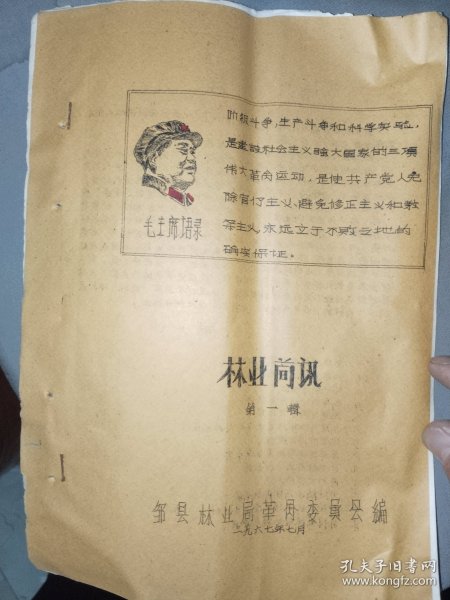 阶级斗争,生产斗争和科学实验,
是建设社会主义强大国家的三项
伟大革命运动,是使共产党人免
除官僚主义、避免修正主义和教
条主义,永远立于不败之地的
确实保证。
毛主席语录
林业简讯
第一辑
邹县林业局革命委员会编
一九六七年七月
孔夫子旧书网
www.kongfz.com